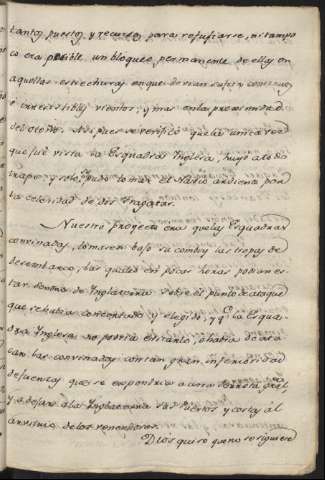 tantos puertos, y recursos para refugiarse, ni tampo
co era posible un bloqueo permanente de ellos en
aquellas estrechuras en que devian sufrir continuos
é irresistibles vientos; y mas en la proximidad
del otoño. Asi pues se verificó que la unica vez
que fué vista la Esquadra Inglesa, huyó a todo
trapo, y solo pudo tomar el Navio Ardiente por
la celeridad de dos Fragatas.
Nuestro proyecto era que las Esquadras
convinadas, tomasen bajo su comboy las tropas de
desembarco, las quales en pocas horas podian es
tar dentro de Inglaterra sobre el punto de ataque
que se habia concertado y elegido, y q.e la Esqua
dra Inglesa no podria entretanto, ó habia de ata
car las convinadas con tan gran inferioridad
de fuerzas que se expondria a una derrota gral,
y a dejar a la Inglaterra sus Puertos y costas al
arvitrio de los vencedores.
Dios quiso que no se siguiese